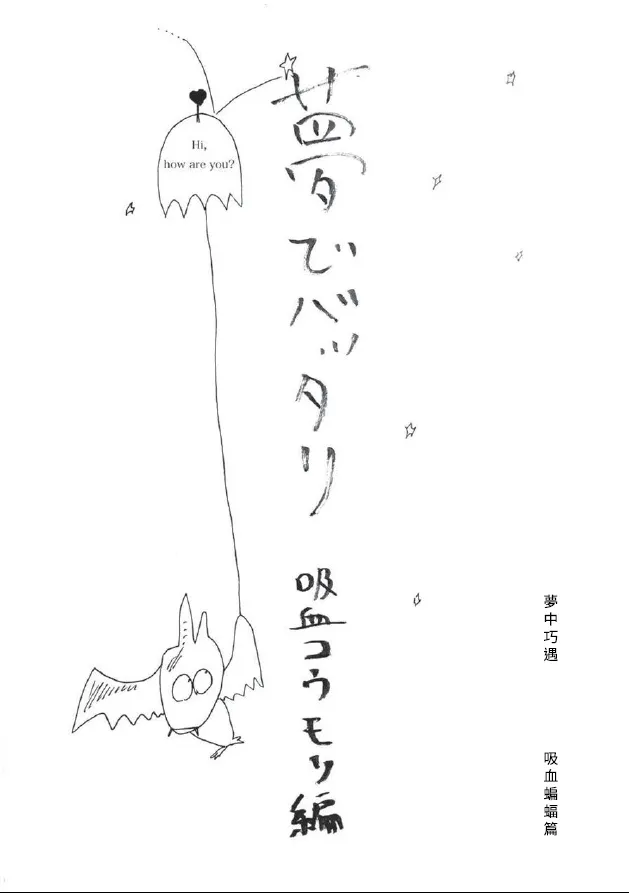 Hi,
how are you?
夢でバッタリ
吸血コウモリ編
夢中巧遇
吸血蝙蝠篇